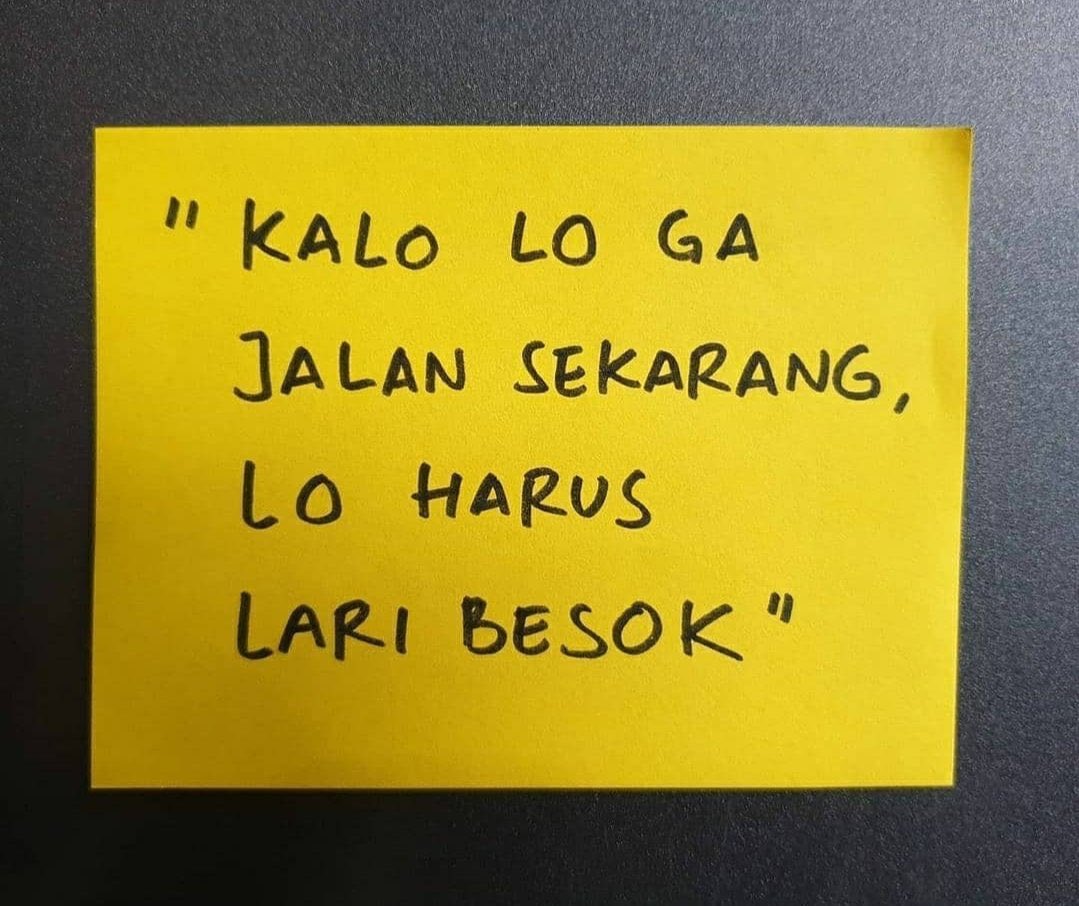 "KALO LO GA
JALAN SEKARANG,
LO HARUS
LARI BESOK"